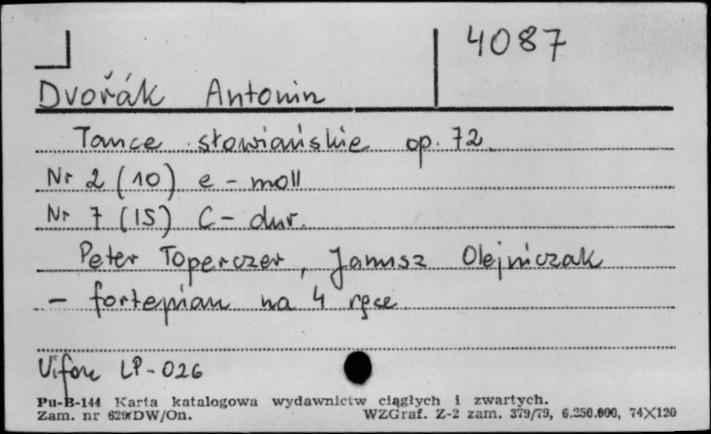 4087
Dvořák Antonin
Tance słowiańskie op. 72
Nr 2 (10) e - moll
Nr 7 (15) C - dur.
Peter Toperczer, Janusz Olejniczak
- fortepian na 4 ręce
Vifon LP - 026
Pu-B-144 Karta katalogowa wydawnictw ciągłych i zwartych.
Zam. nr 629/DW/On. WZGraf. Z-2 zam. 379/79, 6.250.000, 74×120